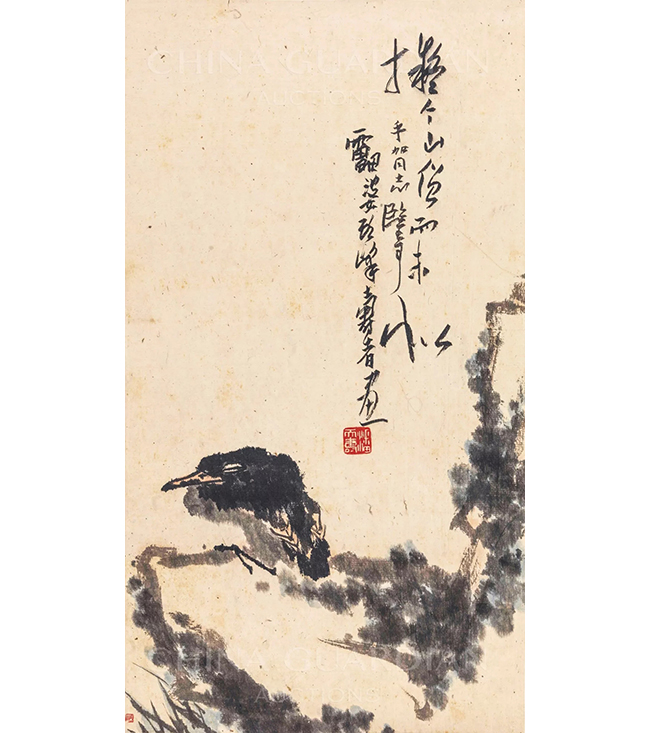 CHINA GUARDIAN
AUCTIONS
擬个山僧而未似
同志鑒
靁婆頭峰壽者畫
CHINA GUARDIAN
AUCTIONS